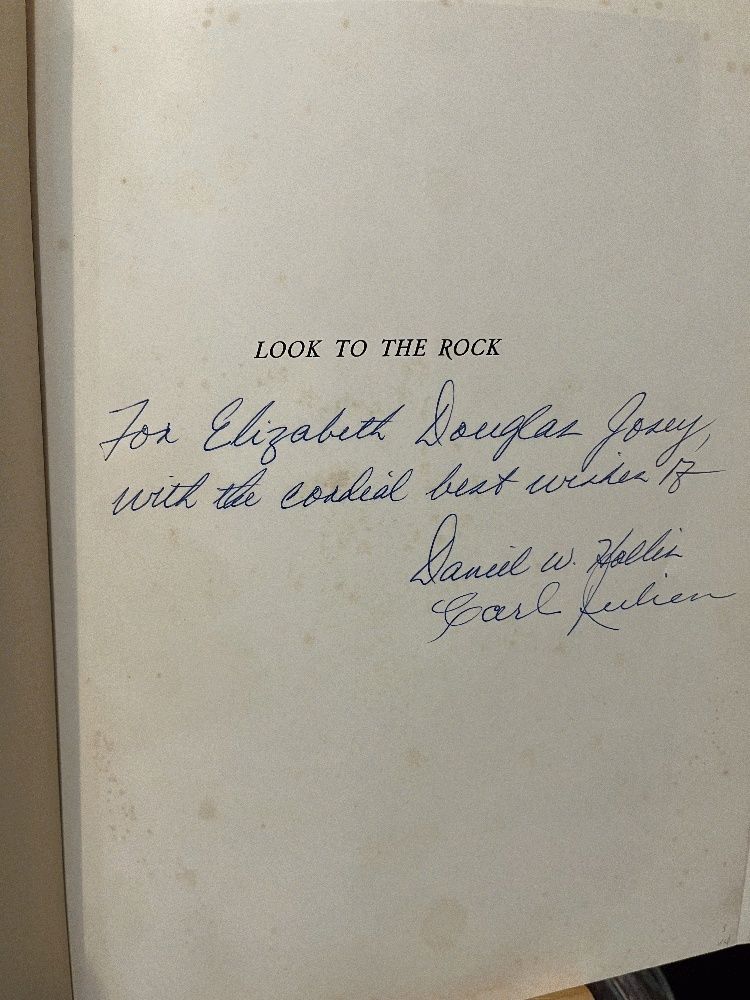 LOOK TO THE ROCK
For Elizabeth Douglas Josey,
with the cordial best wishes of
Daniel W. Hollis
Carl Julien